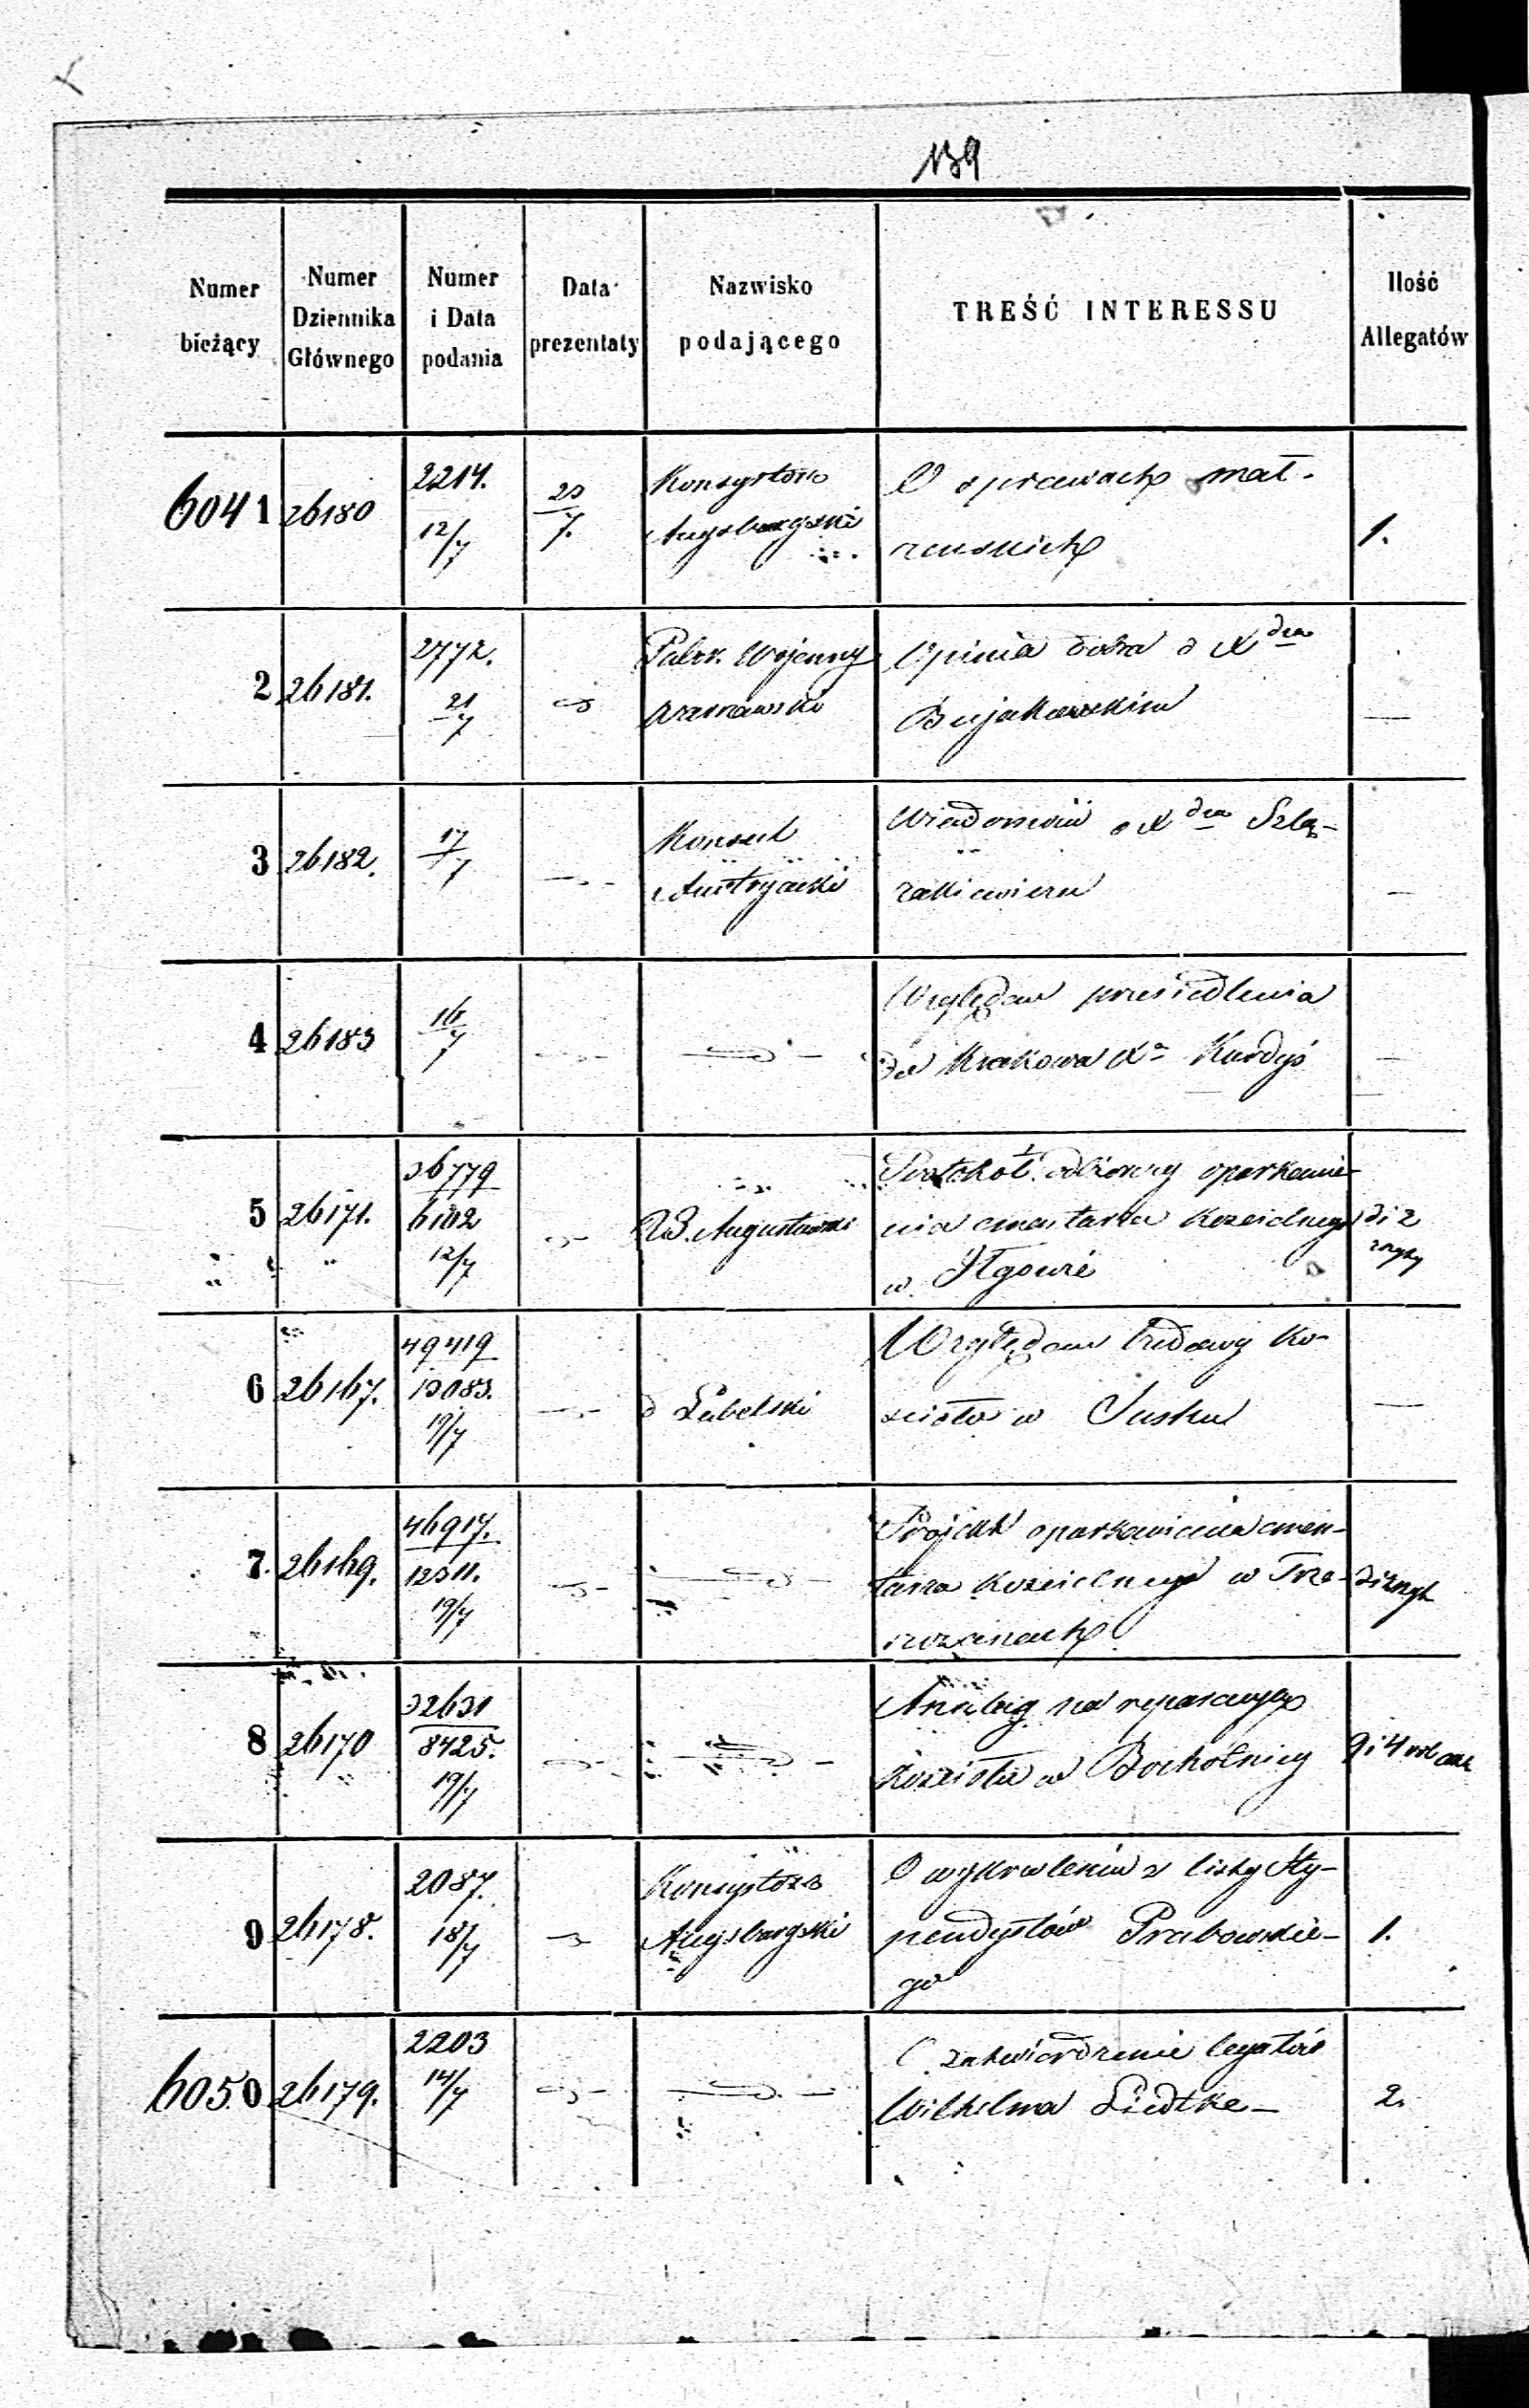 139
Numer bieżący
Numer Dziennika Głównego
Numer i Data podania
Data prezentaty
Nazwisko podającego
TREŚĆ INTERESSU
Ilość Allegatów
6041 26180 2214. 12/7 23/7. Konsystorz Augsburgski O sprawach mał-
żeńskich 1.
2 26181. 2772. 21/7 Wojenny Warszawski Opinia dobra o X dza
Bujakowskim —
3 26182. 17/7 Konsul Austryacki Wiadomość o X dzu Szlą-
zakiewiczu —
4 26183 16/7 Względem przesiedlenia
do Krakowa Xa Kurdyś —
5 26171. 36779 6102 12/7 Augustowski Protokół odbiorczy oparkanie-
nia cmentarza kościelnego
w Iłgowie
6 26167. 49419 13083. 19/7 d Lubelski Względem budowy ko-
ścioła w —
7. 26169. 46917. 12311. 19/7 Projekt oparkanienia cmen-
tarza kościelnego w Trze-
8 26170 32631 8425. 19/7 Anszlag na reparacyą
kościoła w Bochotnicy
9 26178. 2087. 18/7 Konsystorz Augsburgski O wykreśleniu z listy sty-
pendystów Grabowskie-
go 1.
6050 26179. 2203 14/7 O zatwierdzenie legatów
Wilhelma Liedtke — 2.